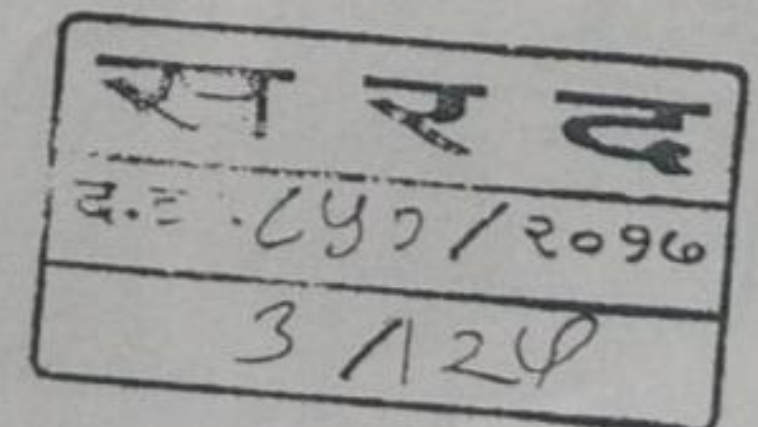 स र द
द.नं. ८५१/२०१७
3/124